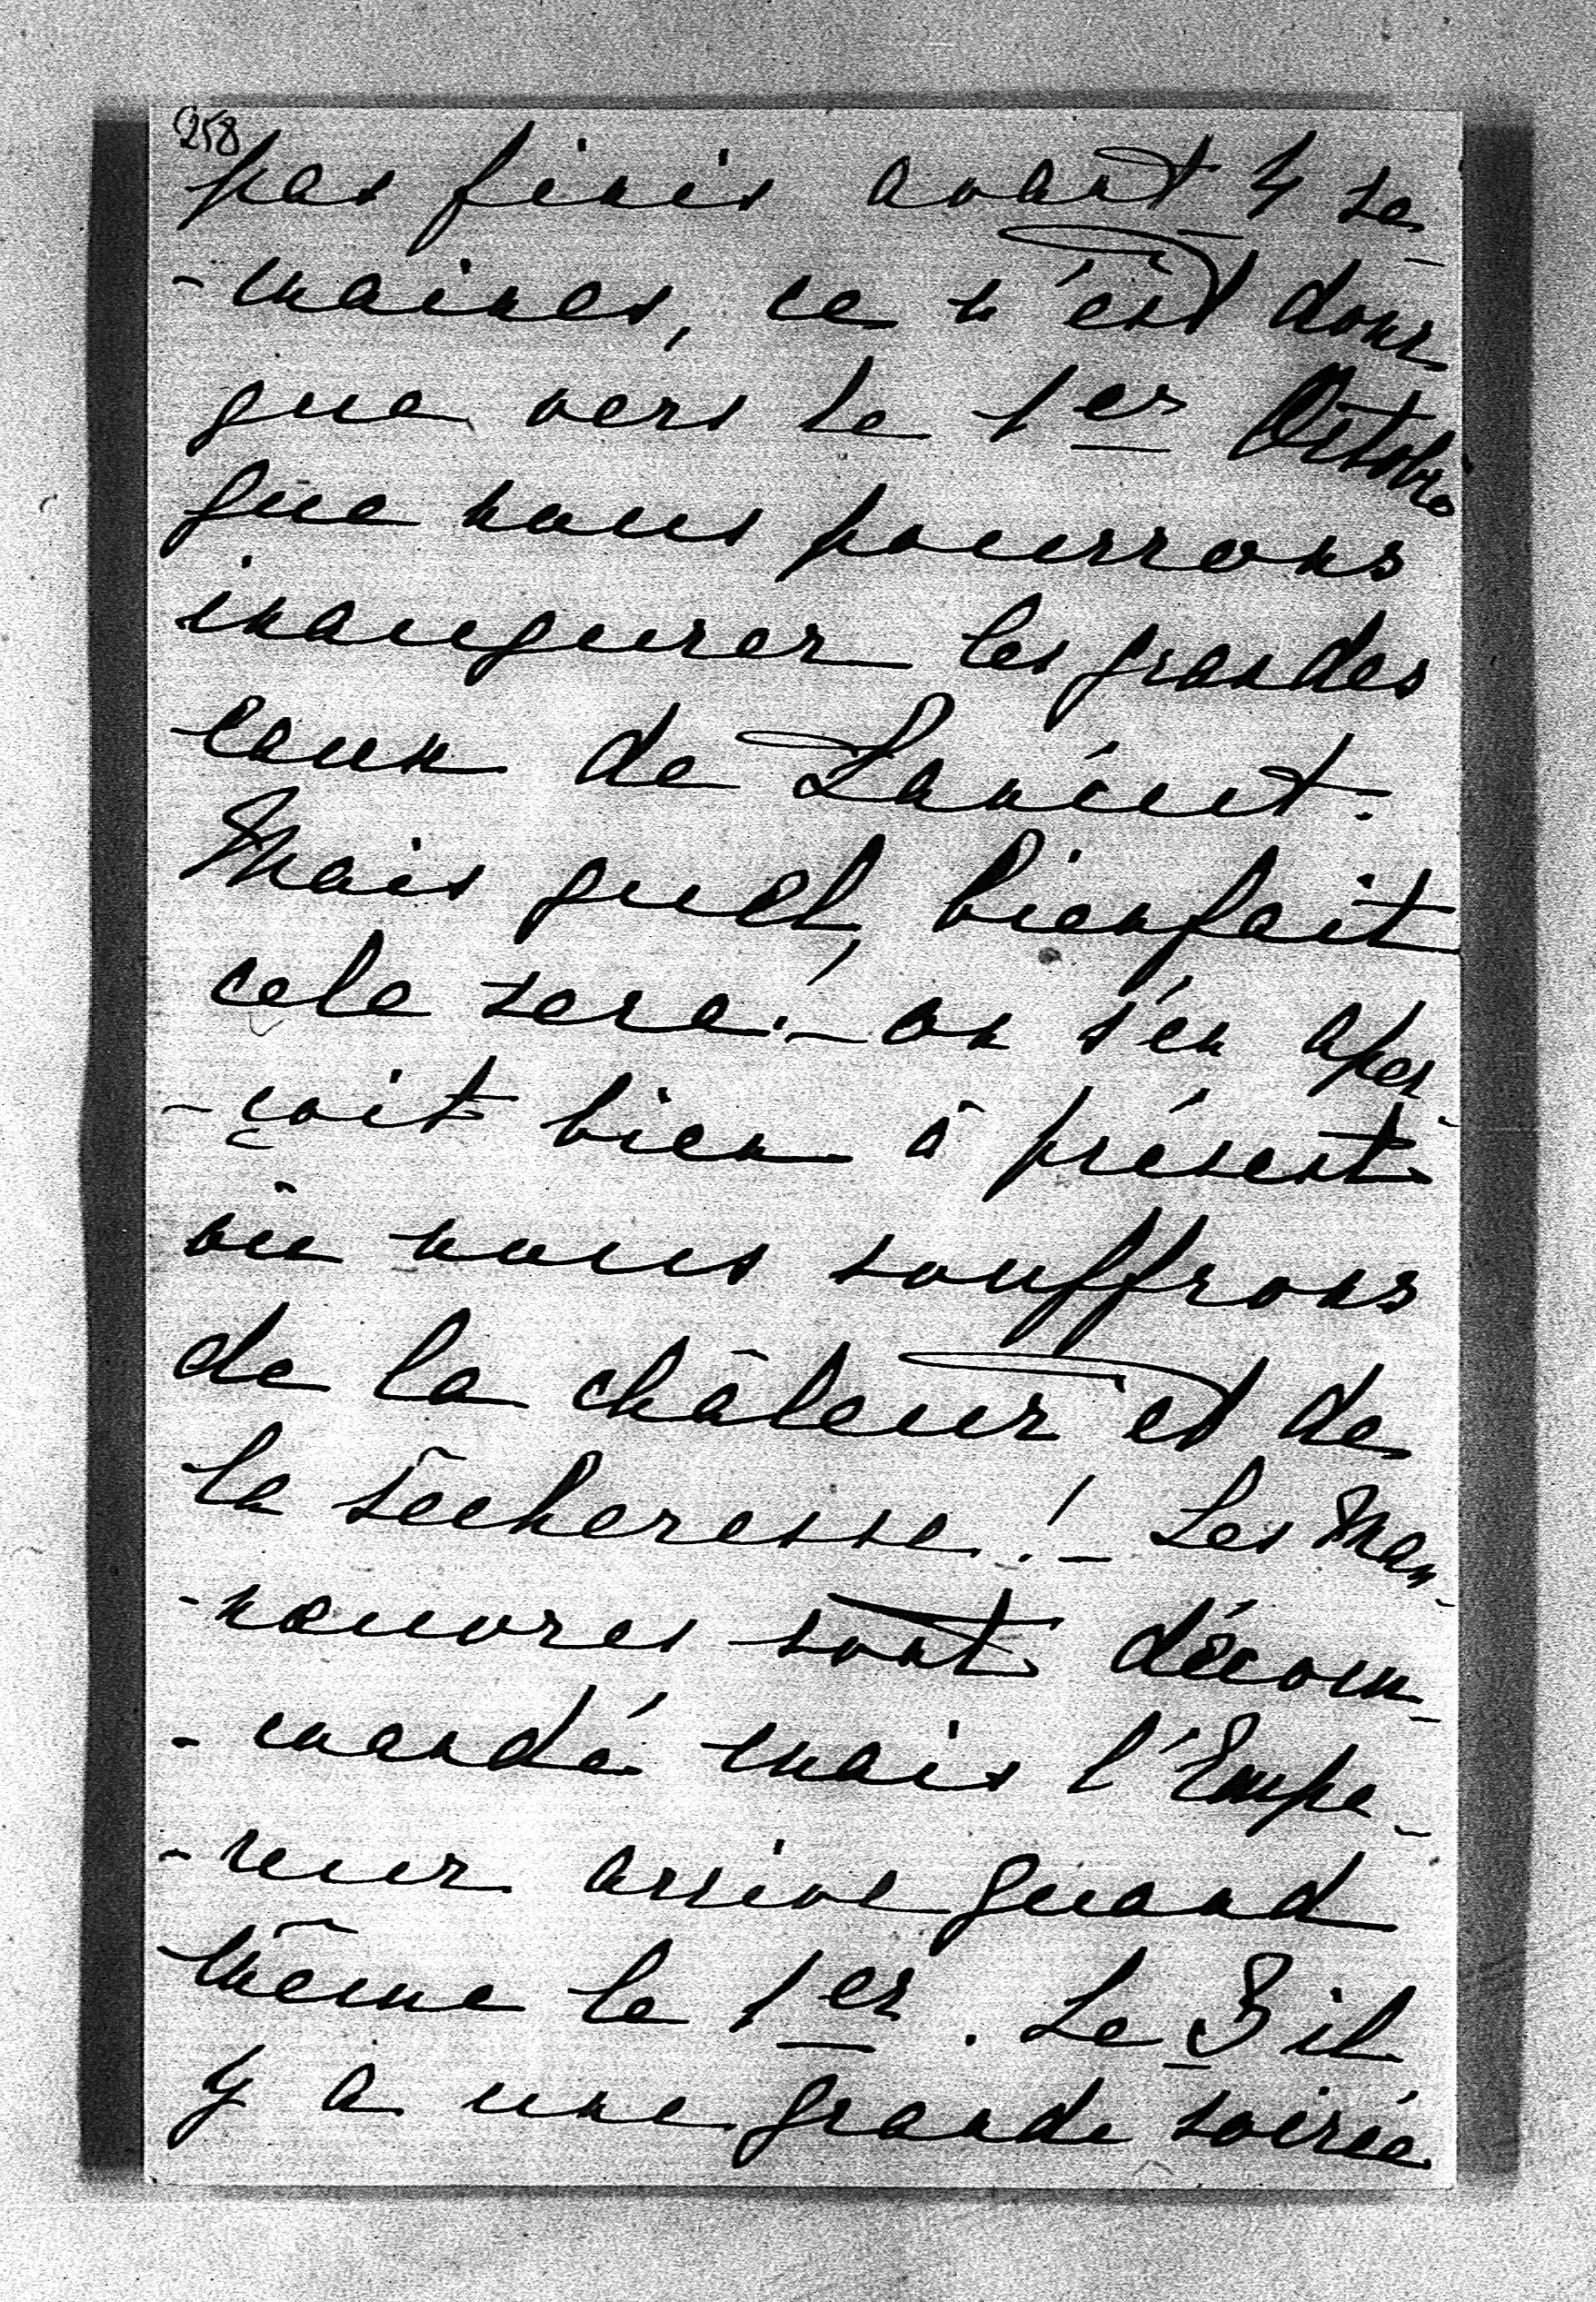 258
pas finis avant 4 se-
-maines, ce n'est donc
que vers le 1er Octobre
que nous pourrons
inaugurer les grandes
eaux de Lancut.
Mais quel bienfait
cela sera!– on s'en aper-
-çoit bien à présent
où nous souffrons
de la châleur et de
la sècheresse!– Les Man-
-noeuvres sont décom-
-mandé mais l'Empe-
-reur arrive quand
même le 1er. Le 3 il
y a une grande soirée